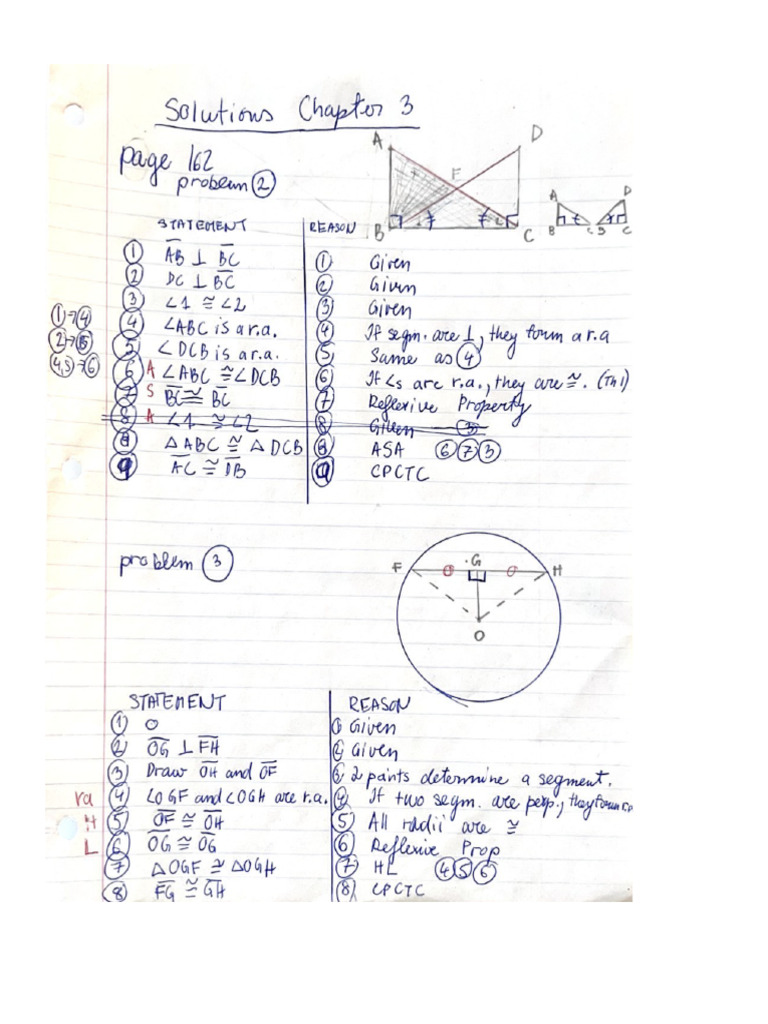 Solutions Chapter 3
page 162
problem ②
A
D
E
B
C
A
B
C
D
B
C
STATEMENT REASON
① AB ⊥ BC ① Given
② DC ⊥ BC ② Given
③ ∠1 ≅ ∠2 ③ Given
①→④ ④ ∠ABC is a r.a. ④ If segm. are ⊥, they form a r.a
②→⑤ ⑤ ∠DCB is a r.a. ⑤ Same as ④
④,⑤→⑥ ⑥ A ∠ABC ≅ ∠DCB ⑥ If ∠s are r.a., they are ≅. (Th1)
⑦ S BC ≅ BC ⑦ Reflexive Property
⑧ A ∠1 ≅ ∠2 ⑧ Given ③
⑧ △ABC ≅ △DCB ⑧ ASA ⑥⑦③
⑨ AC ≅ DB ⑨ CPCTC
problem ③
F
G
H
O
STATEMENT REASON
① O ① Given
② OG ⊥ FH ② Given
③ Draw OH and OF ③ 2 points determine a segment.
ra ④ ∠OGF and ∠OGH are r.a. ④ If two segm. are perp., they form r.a
H ⑤ OF ≅ OH ⑤ All radii are ≅
L ⑥ OG ≅ OG ⑥ Reflexive Prop
⑦ △OGF ≅ △OGH ⑦ HL ④⑤⑥
⑧ FG ≅ GH ⑧ CPCTC